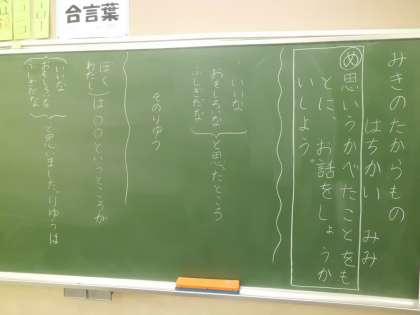 合言葉
みきのたからもの
はちかい みみ
め 思いうかべたことをも
とに、お話をしょうか
いしよう。
いいな
おもしろいな
ふしぎだな
と思ったところ
そのりゆう
ぼく
わたし
は〇〇というところが
いいな
おもしろいな
ふしぎだな
と思いました。りゆうは